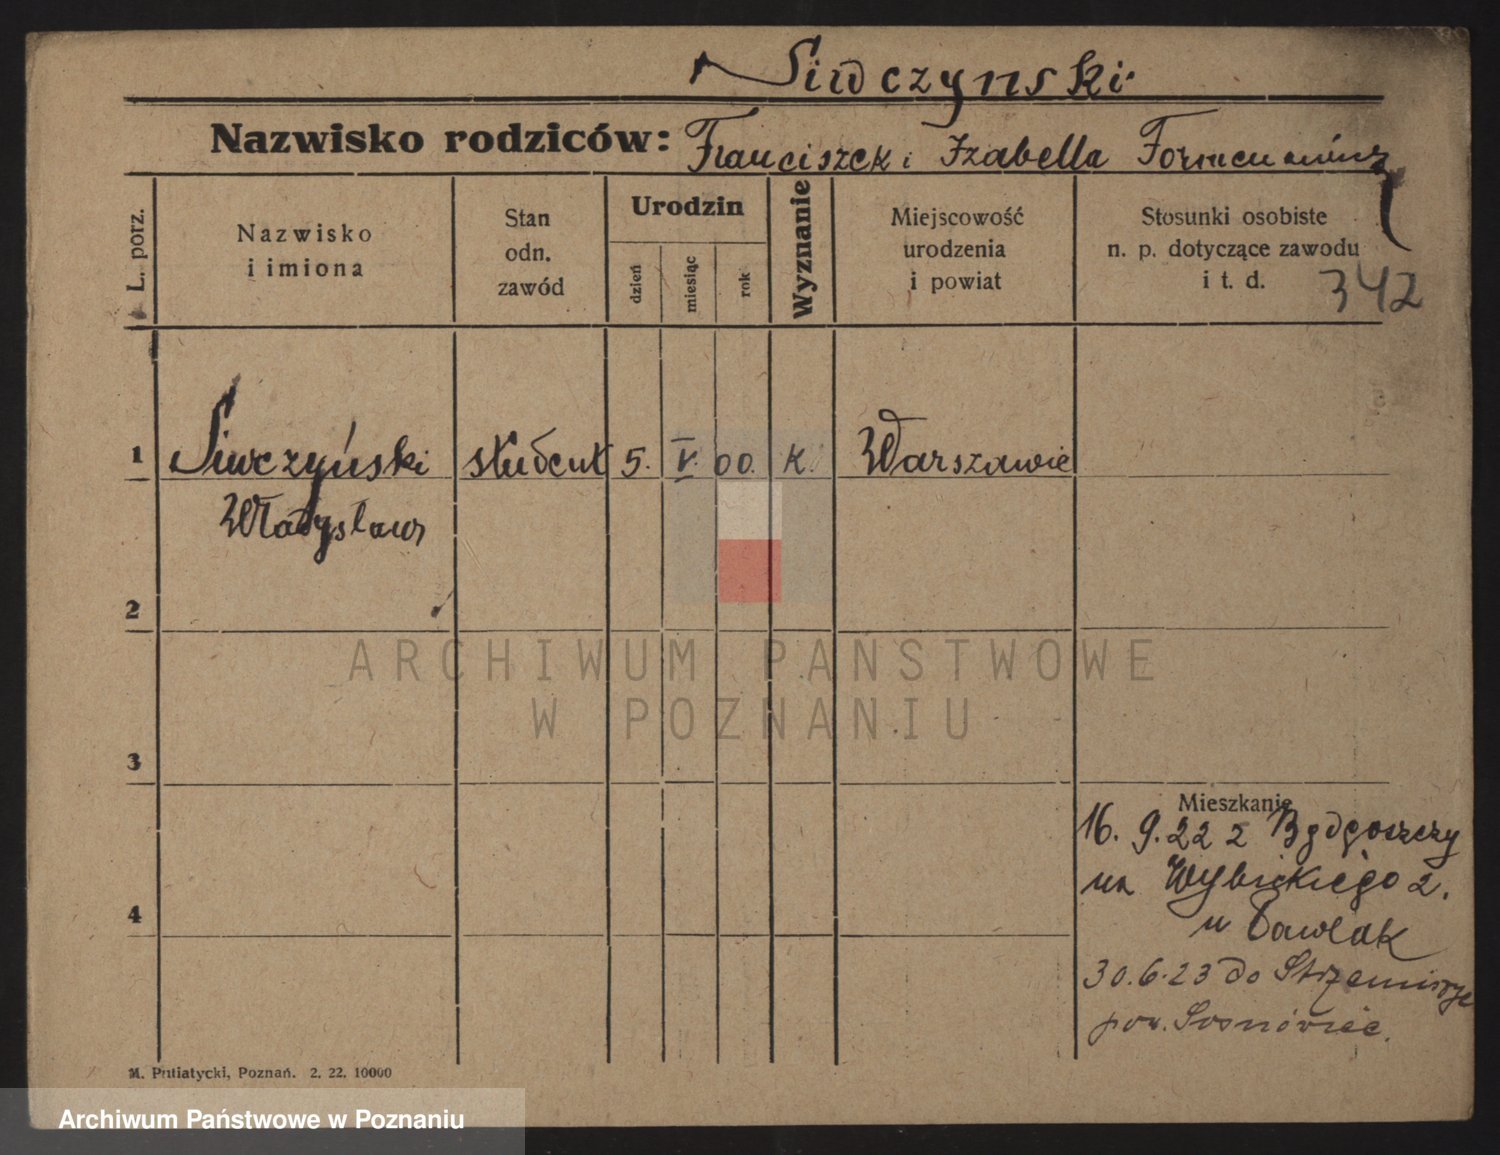 Siwczynski
Nazwisko rodziców: Franciszek i Izabella
L. porz.
Nazwisko
i imiona
Stan
odn.
zawód
Urodzin
dzień
miesiąc
rok
Wyznanie
Miejscowość
urodzenia
i powiat
Stosunki osobiste
n. p. dotyczące zawodu
i t. d.
342
1 Siwczyński student 5. V. 00. K. Warszawie
Władysław
2
3
4
Mieszkanie
16. 9. 22 z Bydgoszczy
na Wybickiego 2.
u Pawlak
30.6.23 do
pow. Sosnowiec.
M. Putiatycki, Poznań. 2. 22. 10000
ARCHIWUM PAŃSTWOWE
W POZNANIU
Archiwum Państwowe w Poznaniu